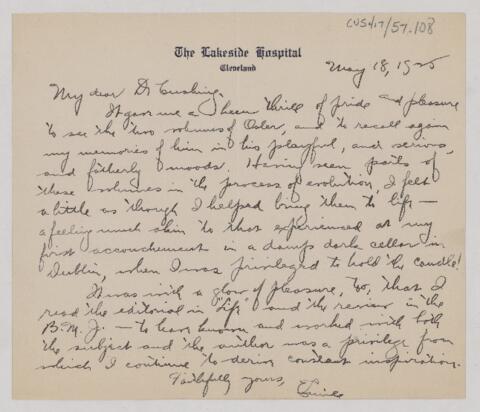 CUS417/57.108
The Lakeside Hospital
Cleveland
May 18, 1925
My dear Dr Cushing,
It gave me a keen thrill of pride and pleasure
to see the two volumes of Osler, and to recall again
my memories of him in his playful, and serious,
and fatherly moods. Having seen parts of
these volumes in the process of evolution, I felt
a little as though I helped bring them to life —
a feeling much akin to that experienced at my
first accouchement in a damp dark cellar in
Dublin, when I was privileged to hold the candle!
It was with a glow of pleasure, too, that I
read the editorial in "Life" and the review in the
B.M.J. — to have known and worked with both
the subject and the author was a privilege from
which I continue to derive constant inspiration.
Faithfully yours,